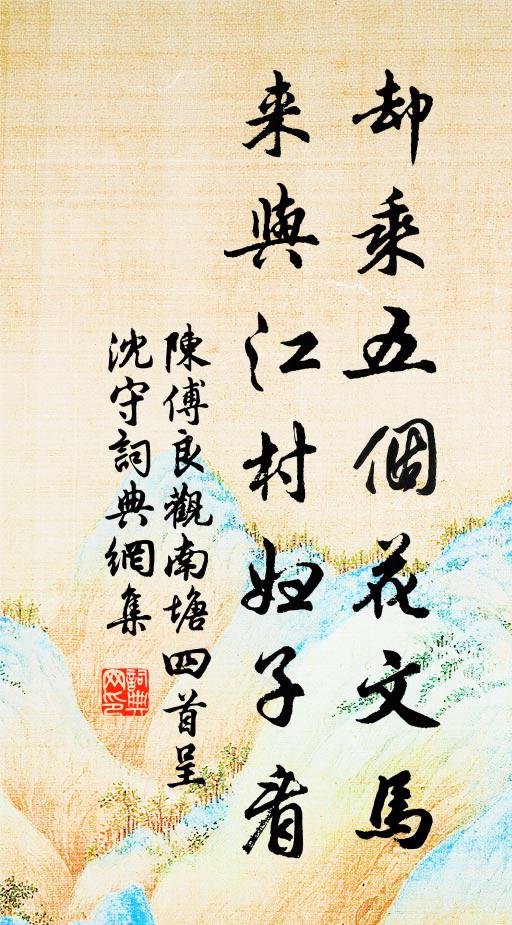 却乘五個花文馬
来與江村妇子看
陳傅良觀南塘四首呈
沈守詞典網集
詞典网印